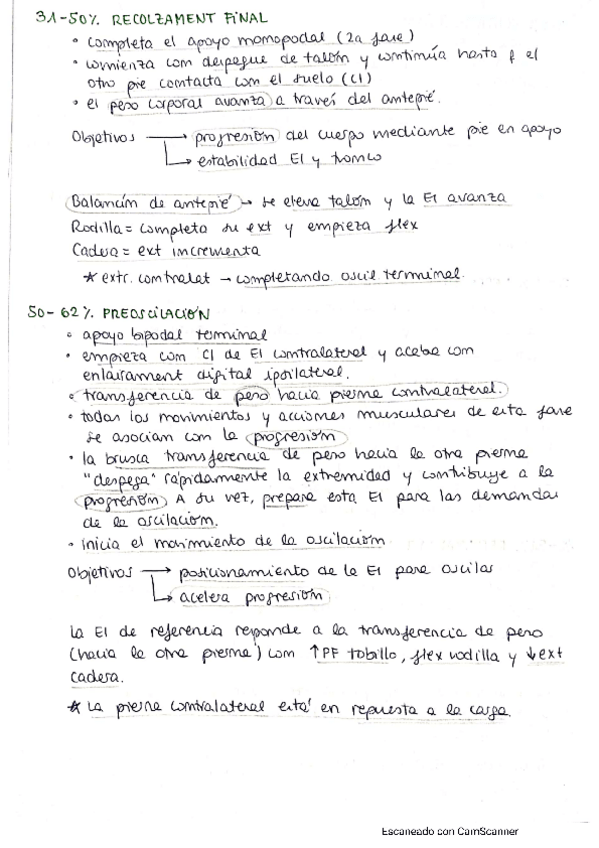 31-50% RECOLZAMENT FINAL
• completa el apoyo monopodal (2a fase)
• comienza con despegue de talón y continúa hasta q el
otro pie contacta con el suelo (CI)
• el peso corporal avanza a través del antepié.
Objetivos → progresión del cuerpo mediante pie en apoyo
→ estabilidad EI y tronco
Balancín de antepié → se eleva talón y la EI avanza
Rodilla = completa su ext y empieza flex
Cadera = ext incrementa
* extr. contralat → completando oscil terminal.
50-62% PREOSCILACIÓN
• apoyo bipodal terminal
• empieza con CI de EI contralateral y acaba con
enlairament digital ipsilateral.
• transferencia de peso hacia pierna contralateral.
• todos los movimientos y acciones musculares de esta fase
se asocian con la progresión
• la brusca transferencia de peso hacia la otra pierna
"despega" rápidamente la extremidad y contribuye a la
progresión. A su vez, prepara esta EI para las demandas
de la oscilación.
• inicia el movimiento de la oscilación
Objetivos → posicionamiento de la EI para oscilar
→ acelera progresión
La EI de referencia responde a la transferencia de peso
(hacia la otra pierna) con ↑PF tobillo, flex rodilla y ↓ext
cadera.
* La pierna contralateral está en repuesta a la carga.
Escaneado con CamScanner